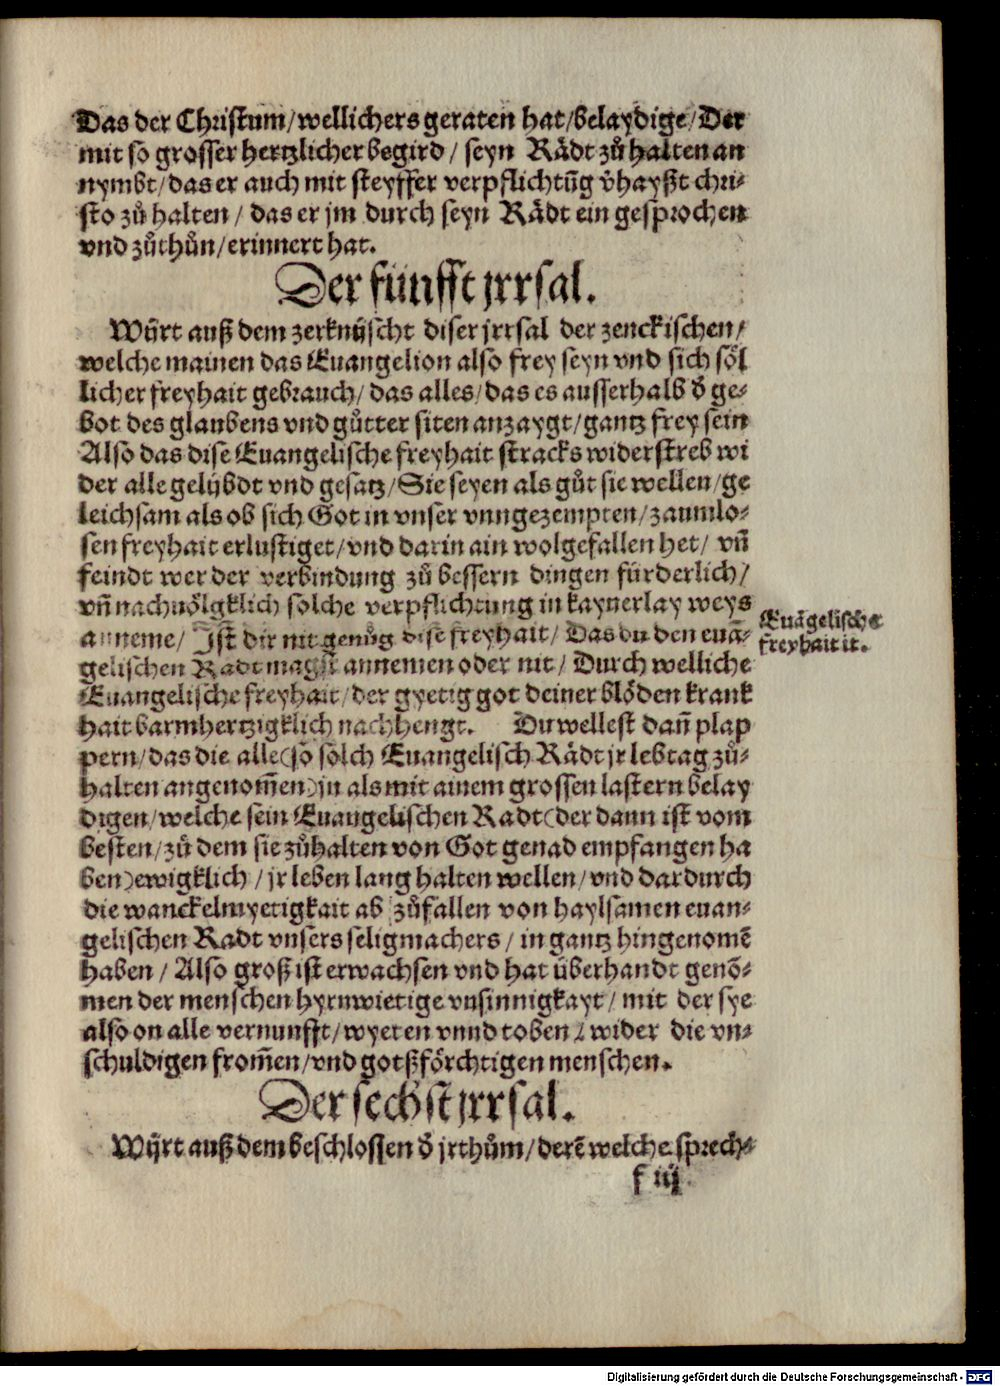 Das der Christum/wellichers geraten hat/belaydige/Der
mit so grosser hertzlicher begird / seyn Rädt zů halten an
nymbt/das er auch mit steyffer verpflichtũg v̓hayßt chri-
sto zů halten / das er jm durch seyn Rädt ein gesprochen
vnd zůthůn/erinnert hat.
Der fünfft jrrsal.
Wÿrt auß dem zerknÿscht diser jrrsal der zenckischen/
welche mainen das Euangelion also frey seyn vnd sich söl
licher freyhait gebrauch/ das alles/das es ausserhalb d̓ ge-
bot des glaubens vnd gůtter siten anzaygt/gantz frey sein
Also das dise Euangelische freyhait stracks widerstreb wi
der alle gelÿbdt vnd gesatz/Sie seyen als gůt sie wellen/ge
leichsam als ob sich Got in vnser vnngezempten/zaumlo-
sen freyhait erlustiget/vnd darin ain wolgefallen het/ vñ
feindt wer der verbindung zů bessern dingen fürderlich/
vñ nachuölgklich solche verpflichtung in kaynerlay weys
anneme/ Ist dir nit genůg dise freyhait/ Das du den euã-
gelischen Radt magst annemen oder nit/ Durch welliche
Euangelische freyhait/der gyetig got deiner blöden krank
hait barmhertzigklich nachhengt. Du wellest dañ plap
pern/das die alle(so solch Euangelisch Rädt jr lebtag zů-
halten angenom̃en)jn als mit ainem grossen lastern belay
digen/welche sein Euangelischen Radt(der dann ist vom
besten/zů dem sie zůhalten von Got genad empfangen ha
ben)ewigklich/jr leben lang halten wellen/vnd dardurch
die wanckelmyetigkait ab zůfallen von haylsamen euan-
gelischen Radt vnsers seligmachers / in gantz hingenomẽ
haben / Also groß ist erwachsen vnd hat überhandt genõ-
men der menschen hyrnwietige vnsinnigkayt/ mit der sye
also on alle vernunfft/wyeten vnnd toben / wider die vn-
schuldigen from̃en/vnd gotßförchtigen menschen.
Der sechst jrrsal.
Wÿrt auß dem beschlossen d̓ jrthům/derẽ welche sprech-
f iij
Euãgelische
freyhait it.
Digitalisierung gefördert durch die Deutsche Forschungsgemeinschaft - DFG